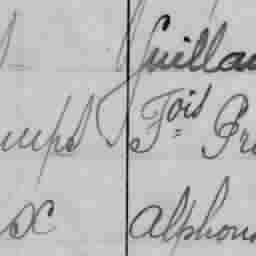 Guillau
umps Fois Pr
x Alphons